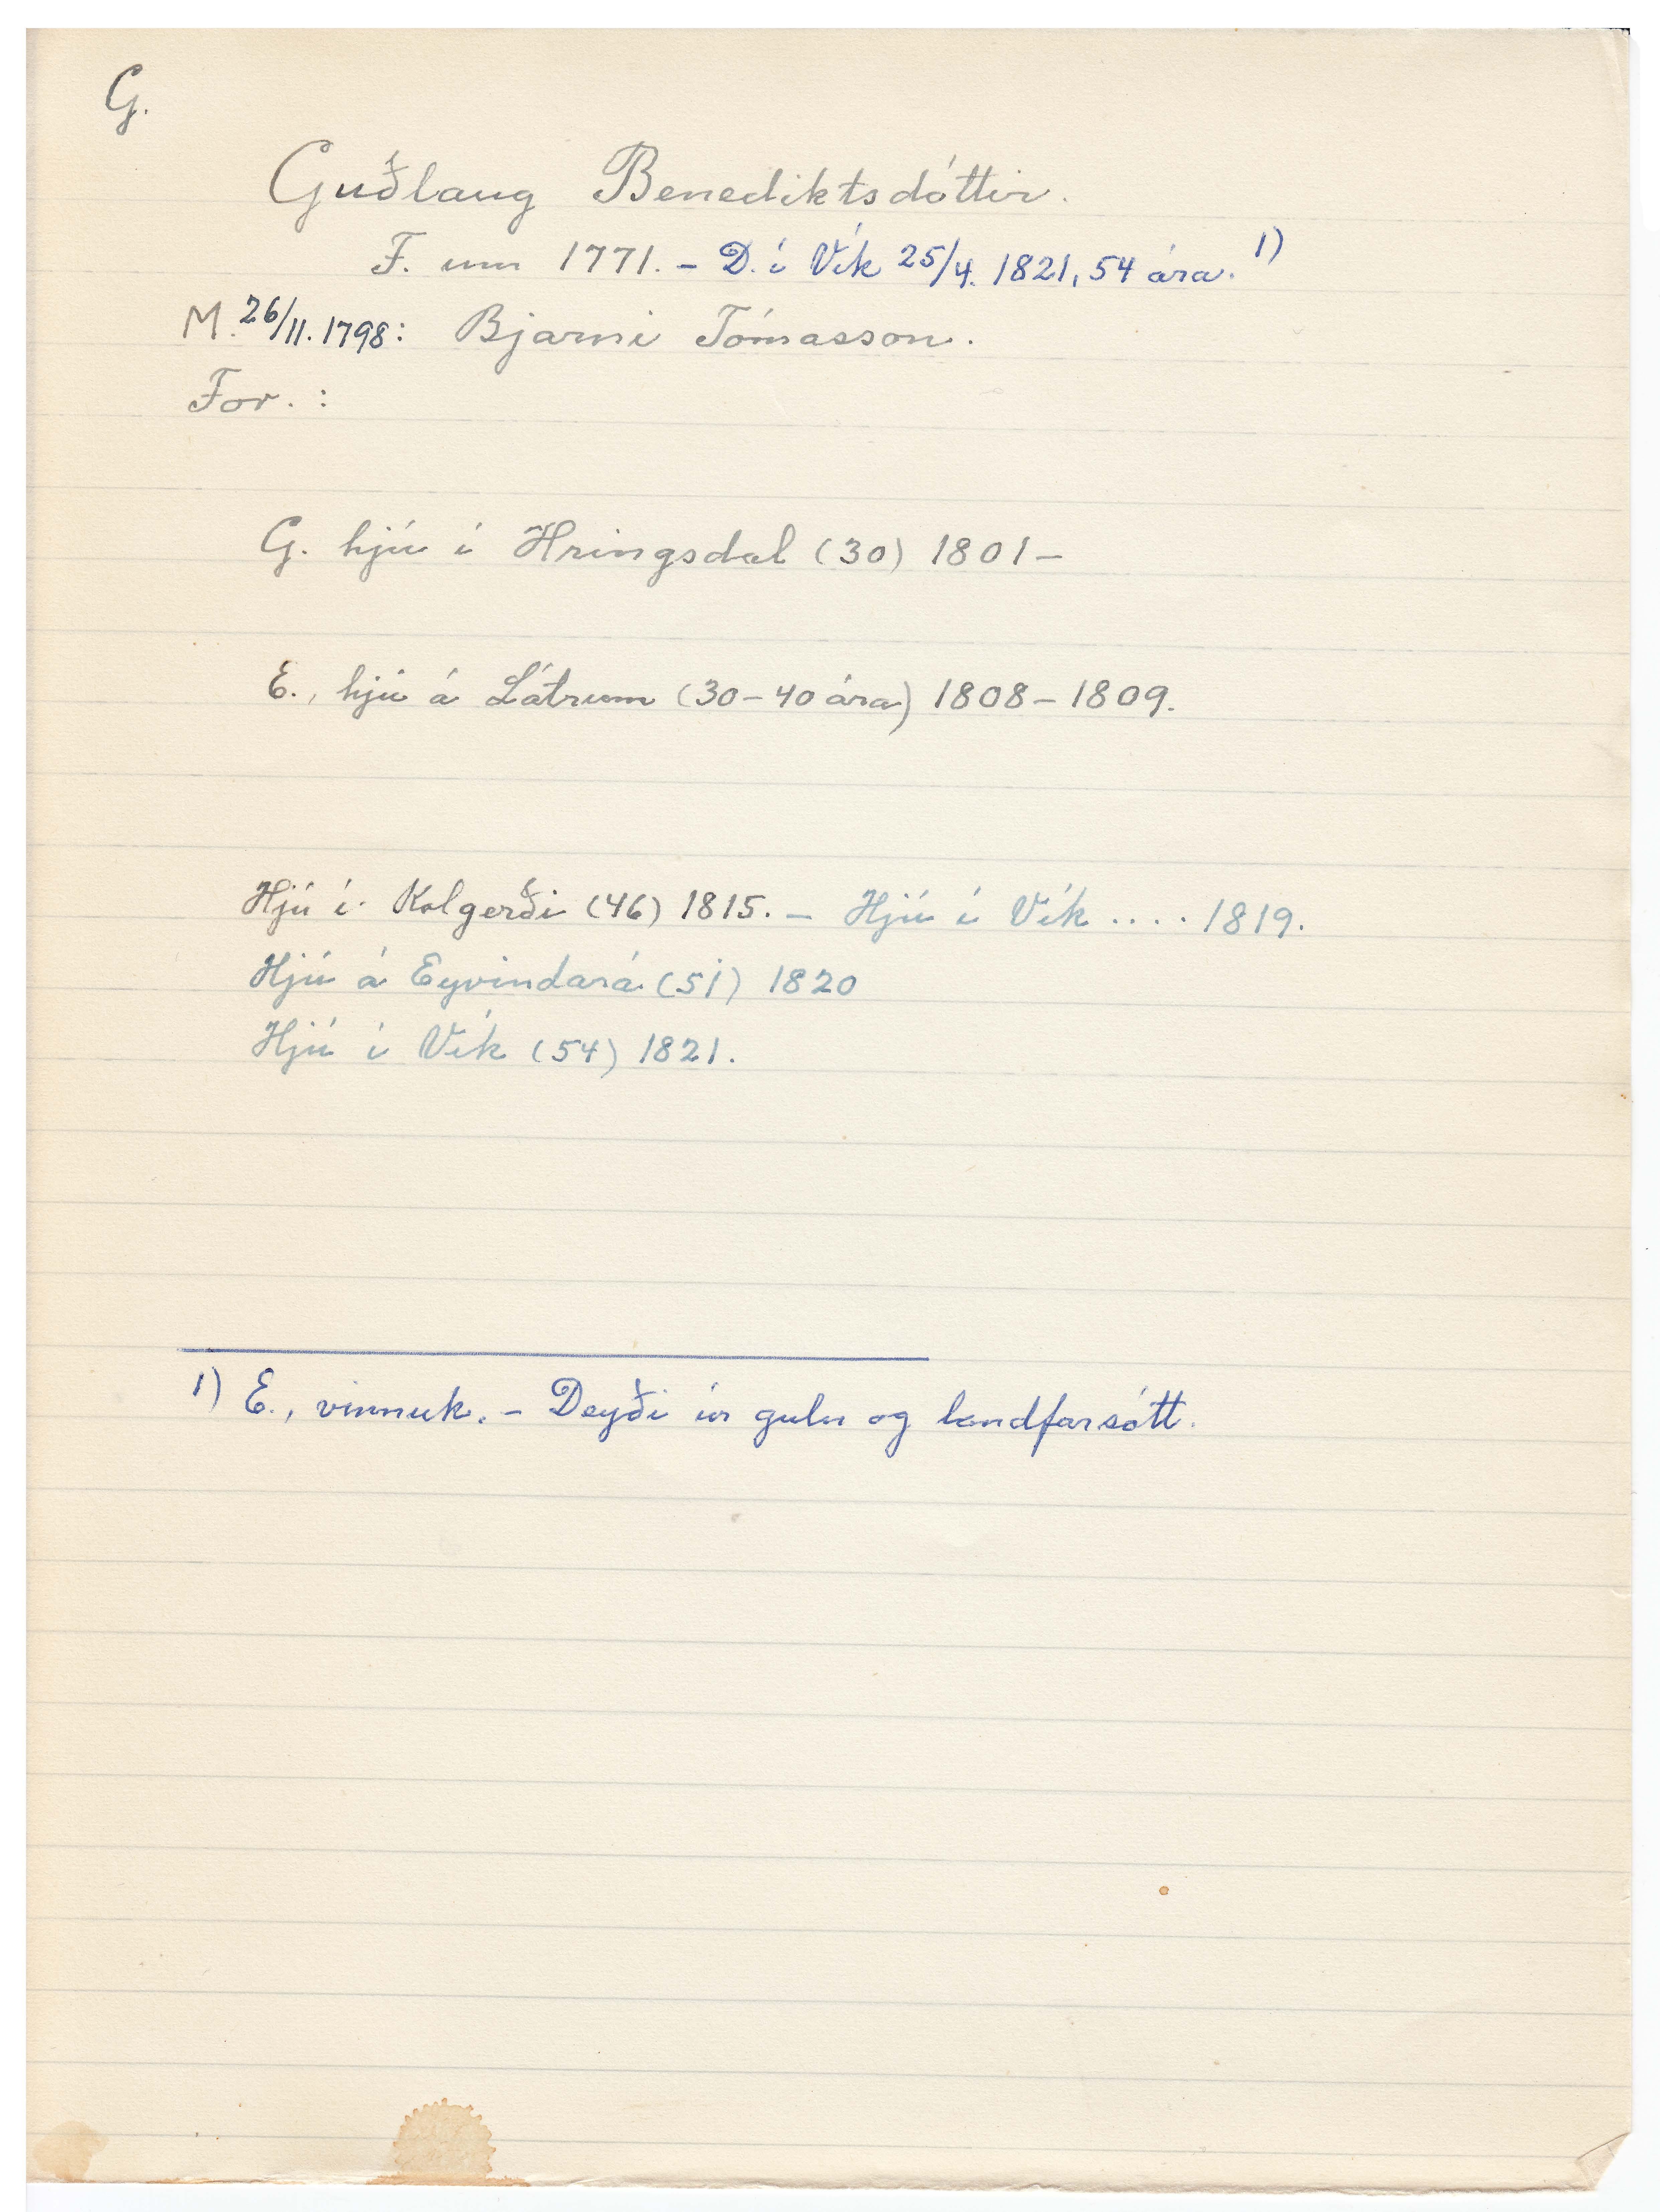 G.
Guðlaug Benediktsdóttir.
F. um 1771. – D. í Vík 25/4. 1821, 54 ára. 1)
M. 26/11. 1798: Bjarni Tómasson.
For. :
G. hjú í Hringsdal (30) 1801 –
E., hjú á Látrum (30–40 ára) 1808–1809.
Hjú í Kolgerði (46) 1815. – Hjú í Vík .... 1819.
Hjú á Eyvindará (51) 1820
Hjú í Vík (54) 1821.
1) E., vinnuk. – Deyði úr gulu og landfarsótt.